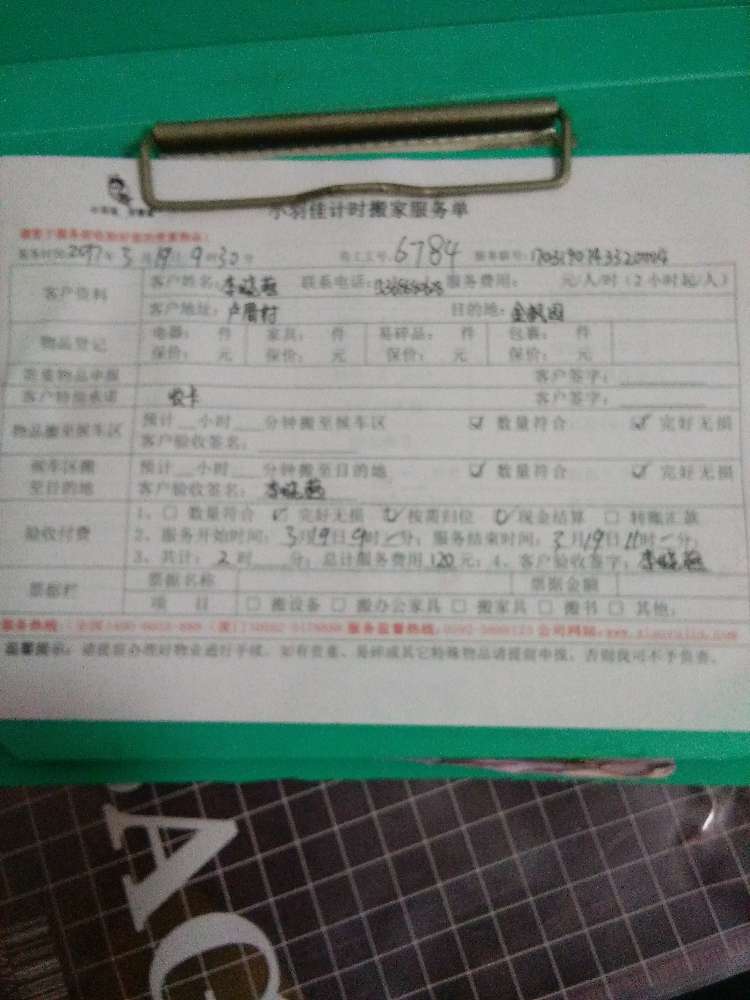 小羽佳计时搬家服务单
9 30 员工工号: 6784
客户资料 客户姓名: 李晓燕 联系电话: 服务费用: 元/人/时（2小时起/人）
客户地址: 卢厝村 目的地: 金帆园
物品登记 电器: 件 家具: 件 易碎品: 件 包裹: 件
保价: 元 保价: 元 保价: 元 保价: 元
贵重物品申报 客户签字:
客户特别承诺 农卡 客户签字:
物品搬至候车区 预计__小时__分钟搬至候车区 ☑ 数量符合 ☑ 完好无损
客户验收签名:
候车区搬至目的地 预计__小时__分钟搬至目的地 ☑ 数量符合 ☑ 完好无损
客户验收签名: 李晓燕
验收付费 1、☐ 数量符合 ☑ 完好无损 ☑ 按需归位 ☑ 现金结算 ☐ 转账汇款
2、服务开始时间: 3月19日9时/分; 服务结束时间: 3月19日11时/分;
3、共计: 2时__分; 总计服务费用120元; 4、客户验收签字: 李晓燕
票据栏 票据名称 票据金额
项目 ☐ 搬设备 ☐ 搬办公家具 ☐ 搬家具 ☐ 搬书 ☐ 其他:
服务热线: 服务监督热线: 公司网站:
温馨提示: 请提前办理好物业通行手续, 如有贵重、易碎或其它特殊物品请提前申报, 否则我司不予负责。
AC